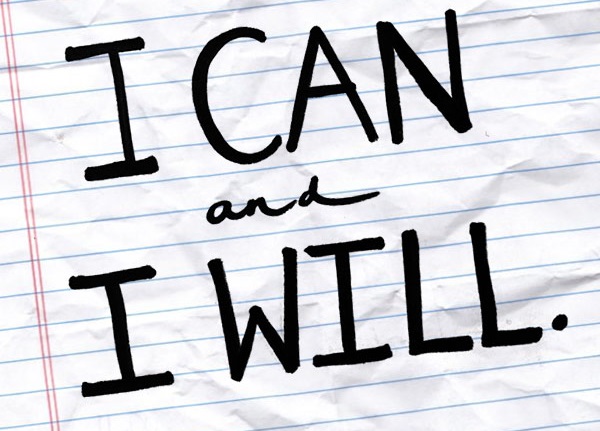 I CAN
and
I WILL.